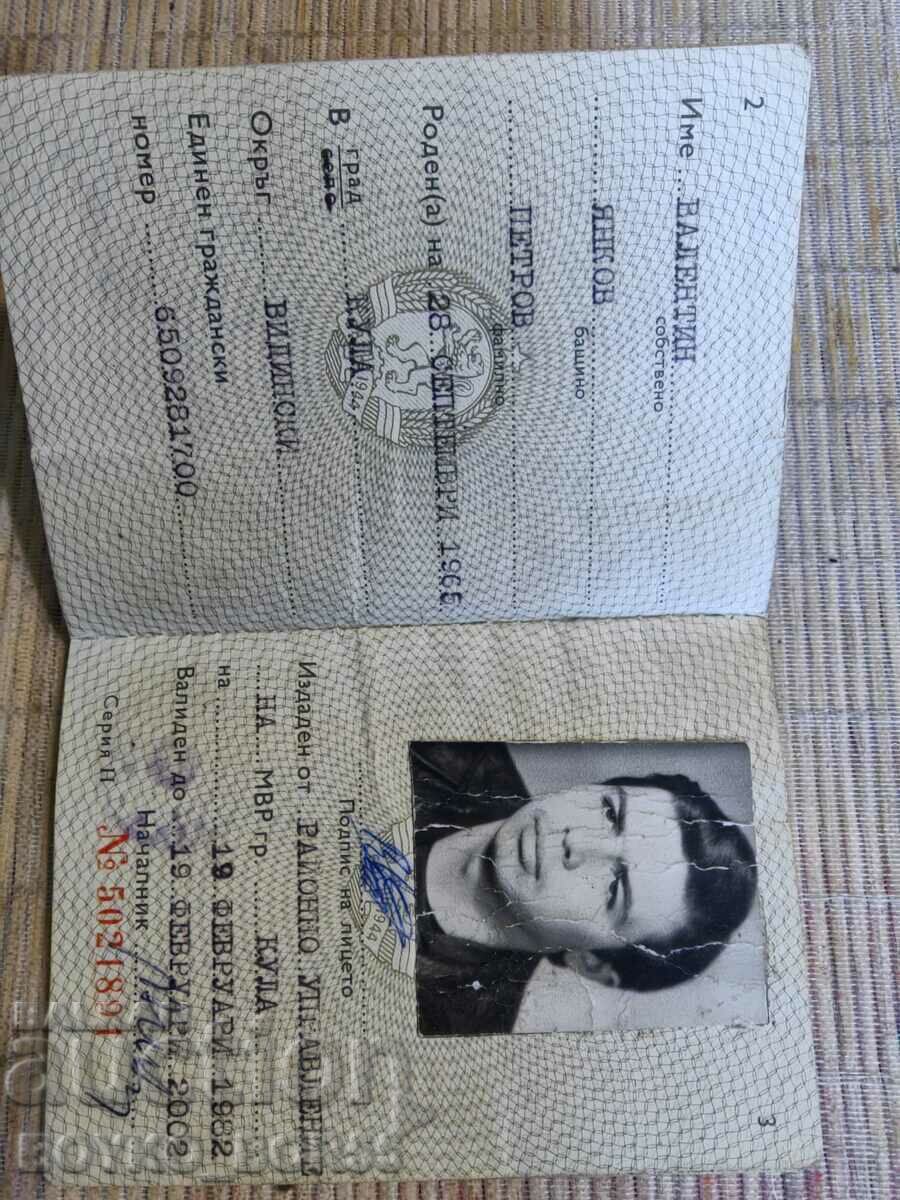 2
Име ... ВАЛЕНТИН
собствено
ЯНКОВ
бащино
ПЕТРОВ
фамилно
Роден(а) на 28 СЕПТЕМВРИ 1965
В град
село
КУЛА
Окръг ВИДИНСКИ
Единен граждански
номер 6509281700
1944
3
Подпис на лицето
Издаден от РАЙОННО УПРАВЛЕНИЕ
НА МВР гр. КУЛА
на 19 ФЕВРУАРИ 1982
Валиден до 19 ФЕВРУАРИ 2002
Началник
Серия П № 5021891